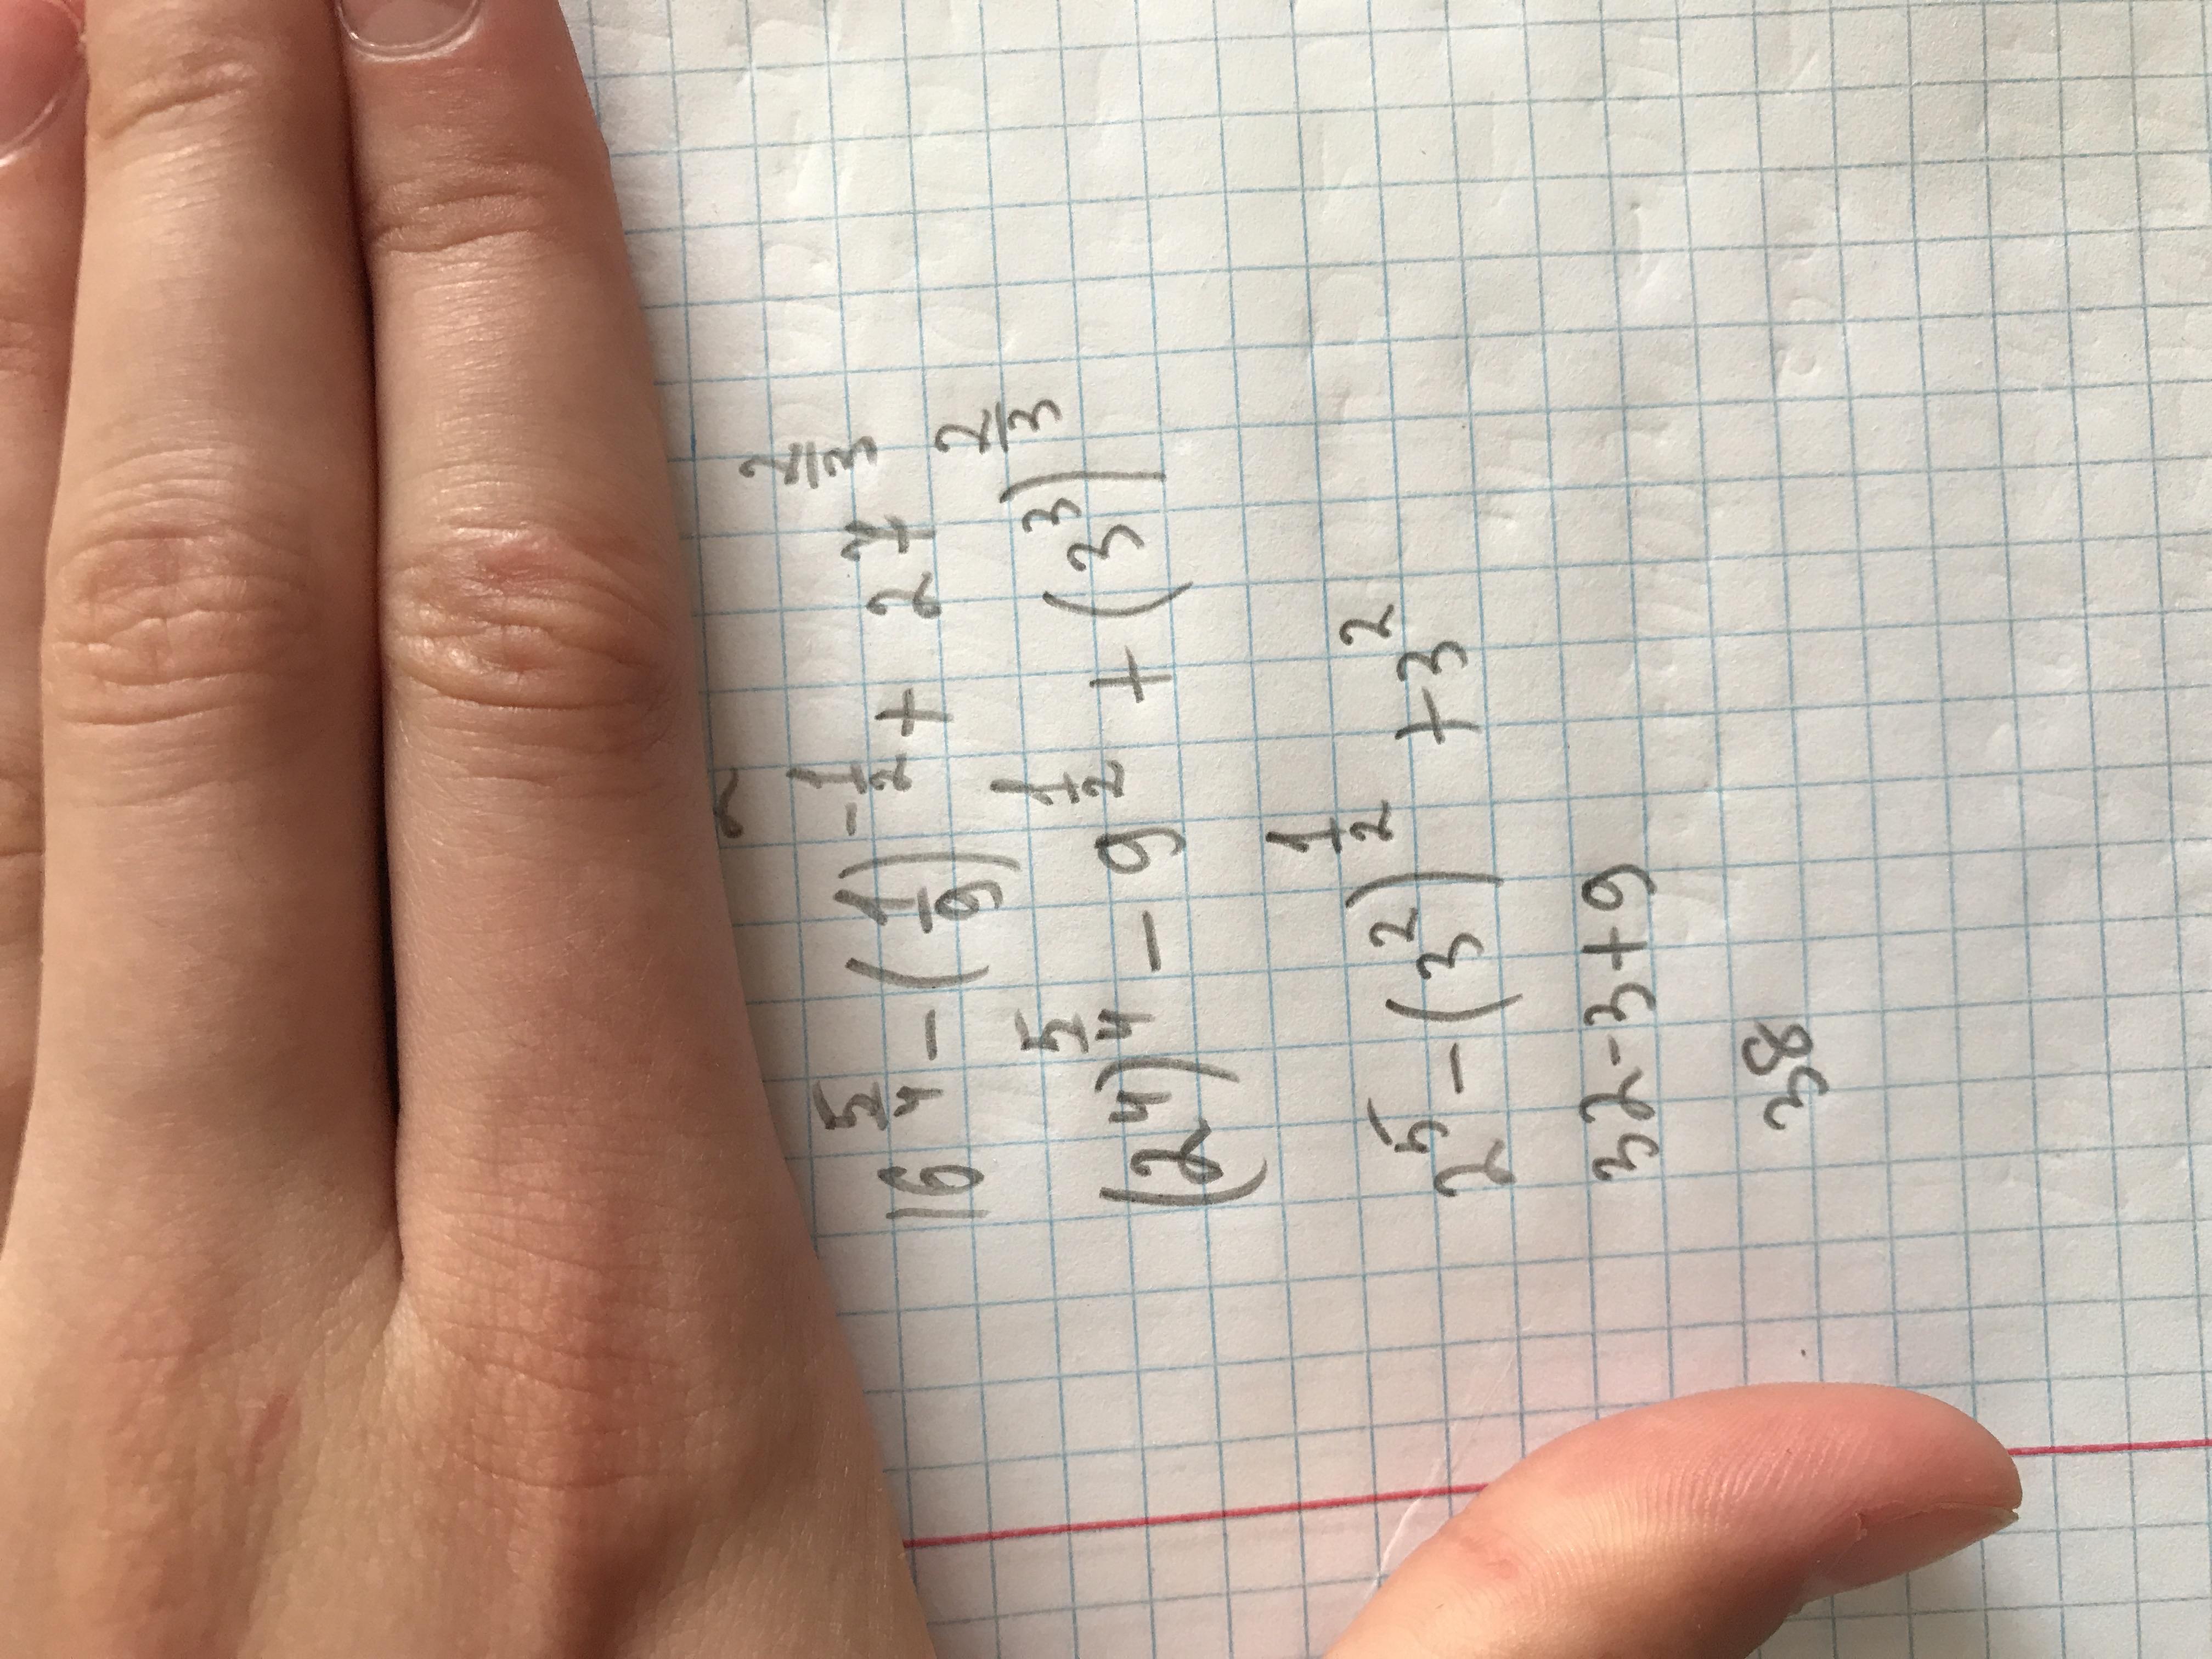 16^(5/4) - (1/9)^(-1/2) + 27^(2/3)
(2^4)^(5/4) - 9^(1/2) + (3^3)^(2/3)
2^5 - (3^2)^(1/2) + 3^2
32-3+9
38